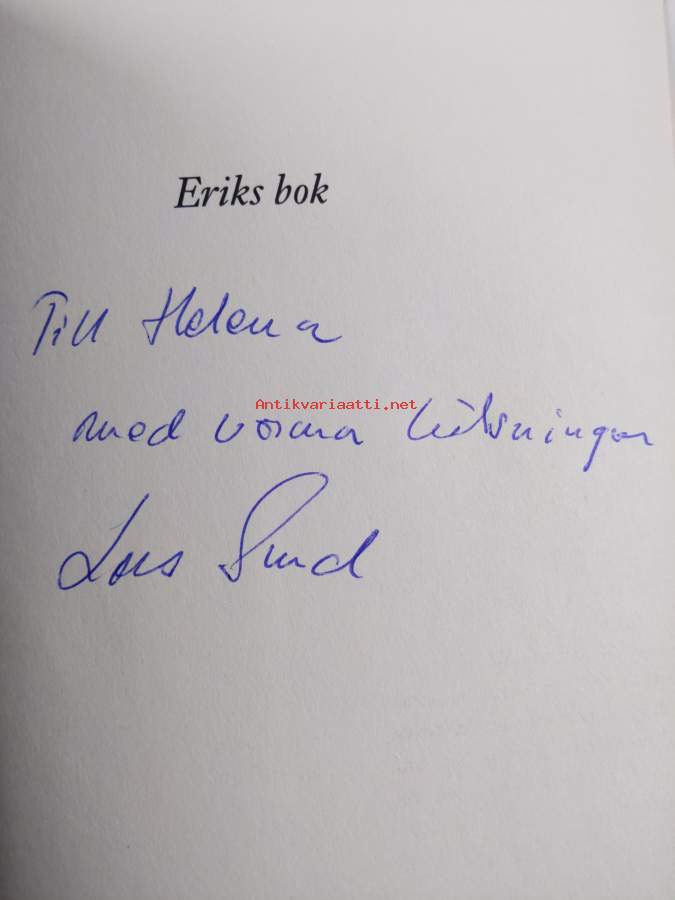 Eriks bok
Till Helena
Antikvariaatti.net
med varma hälsningar
Lars Sund